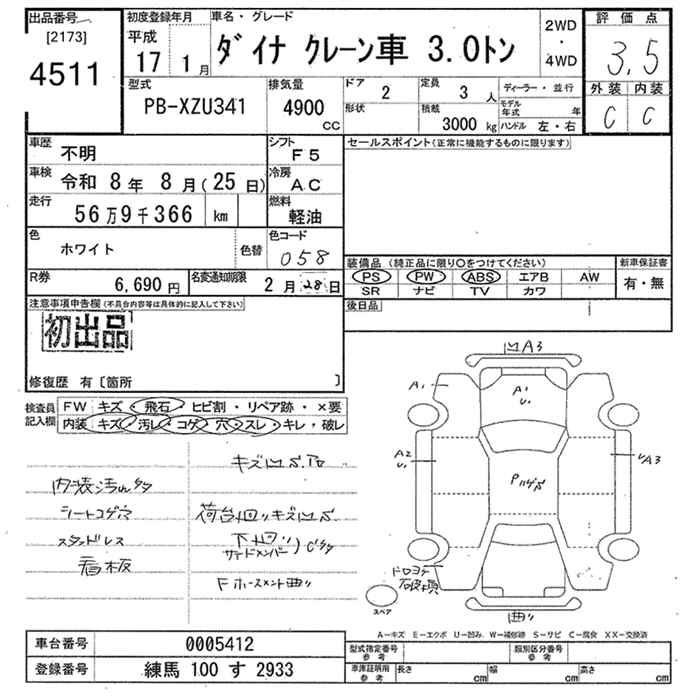 出品番号
[2173]
4511
初度登録年月
平成
17 1月
車名・グレード
ダイナ クレーン車 3.0トン
2WD
・
4WD
評価点
3.5
外装 内装
C C
型式
PB-XZU341
排気量
4900
cc
ドア
2
形状
定員
3人
積載
3000kg
ディーラー・並行
モデル年式 年
ハンドル 左・右
車歴
不明
シフト
F5
車検
令和 8年 8月(25日)
冷房
AC
走行
56万9千366 km
燃料
軽油
色
ホワイト
色替
色コード
058
R券
6,690円
名変通知期限
2月28日
セールスポイント(正常に機能するものに限ります)
装備品(純正品に限り○をつけてください)
PS PW ABS エアB AW
SR ナビ TV カワ
新車保証書
有・無
後日品
注意事項申告欄(不具合内容等は具体的に記入して下さい)
初出品
修復歴 有〔箇所 〕
検査員
記入欄
FW キズ・飛石・ヒビ割・リペア跡・×要
内装 キズ・汚レ・コゲ・穴・スレ・キレ・破レ
内装汚れ多
シートコゲ穴
スタンドレス
看板
荷台回りキズ凹S
下回り
サイドメンバー
C多
曲り
A3
A1
A1
U
A2
U
UA3
スペア
曲り
A－キズ E－エクボ U－凹み W－補修跡 S－サビ C－腐食 XX－交換済
車台番号 0005412
登録番号 練馬 100 す 2933
型式指定番号
参考
類別区分番号
参考
車庫証明用
参考
長さ cm 幅 cm 高さ cm